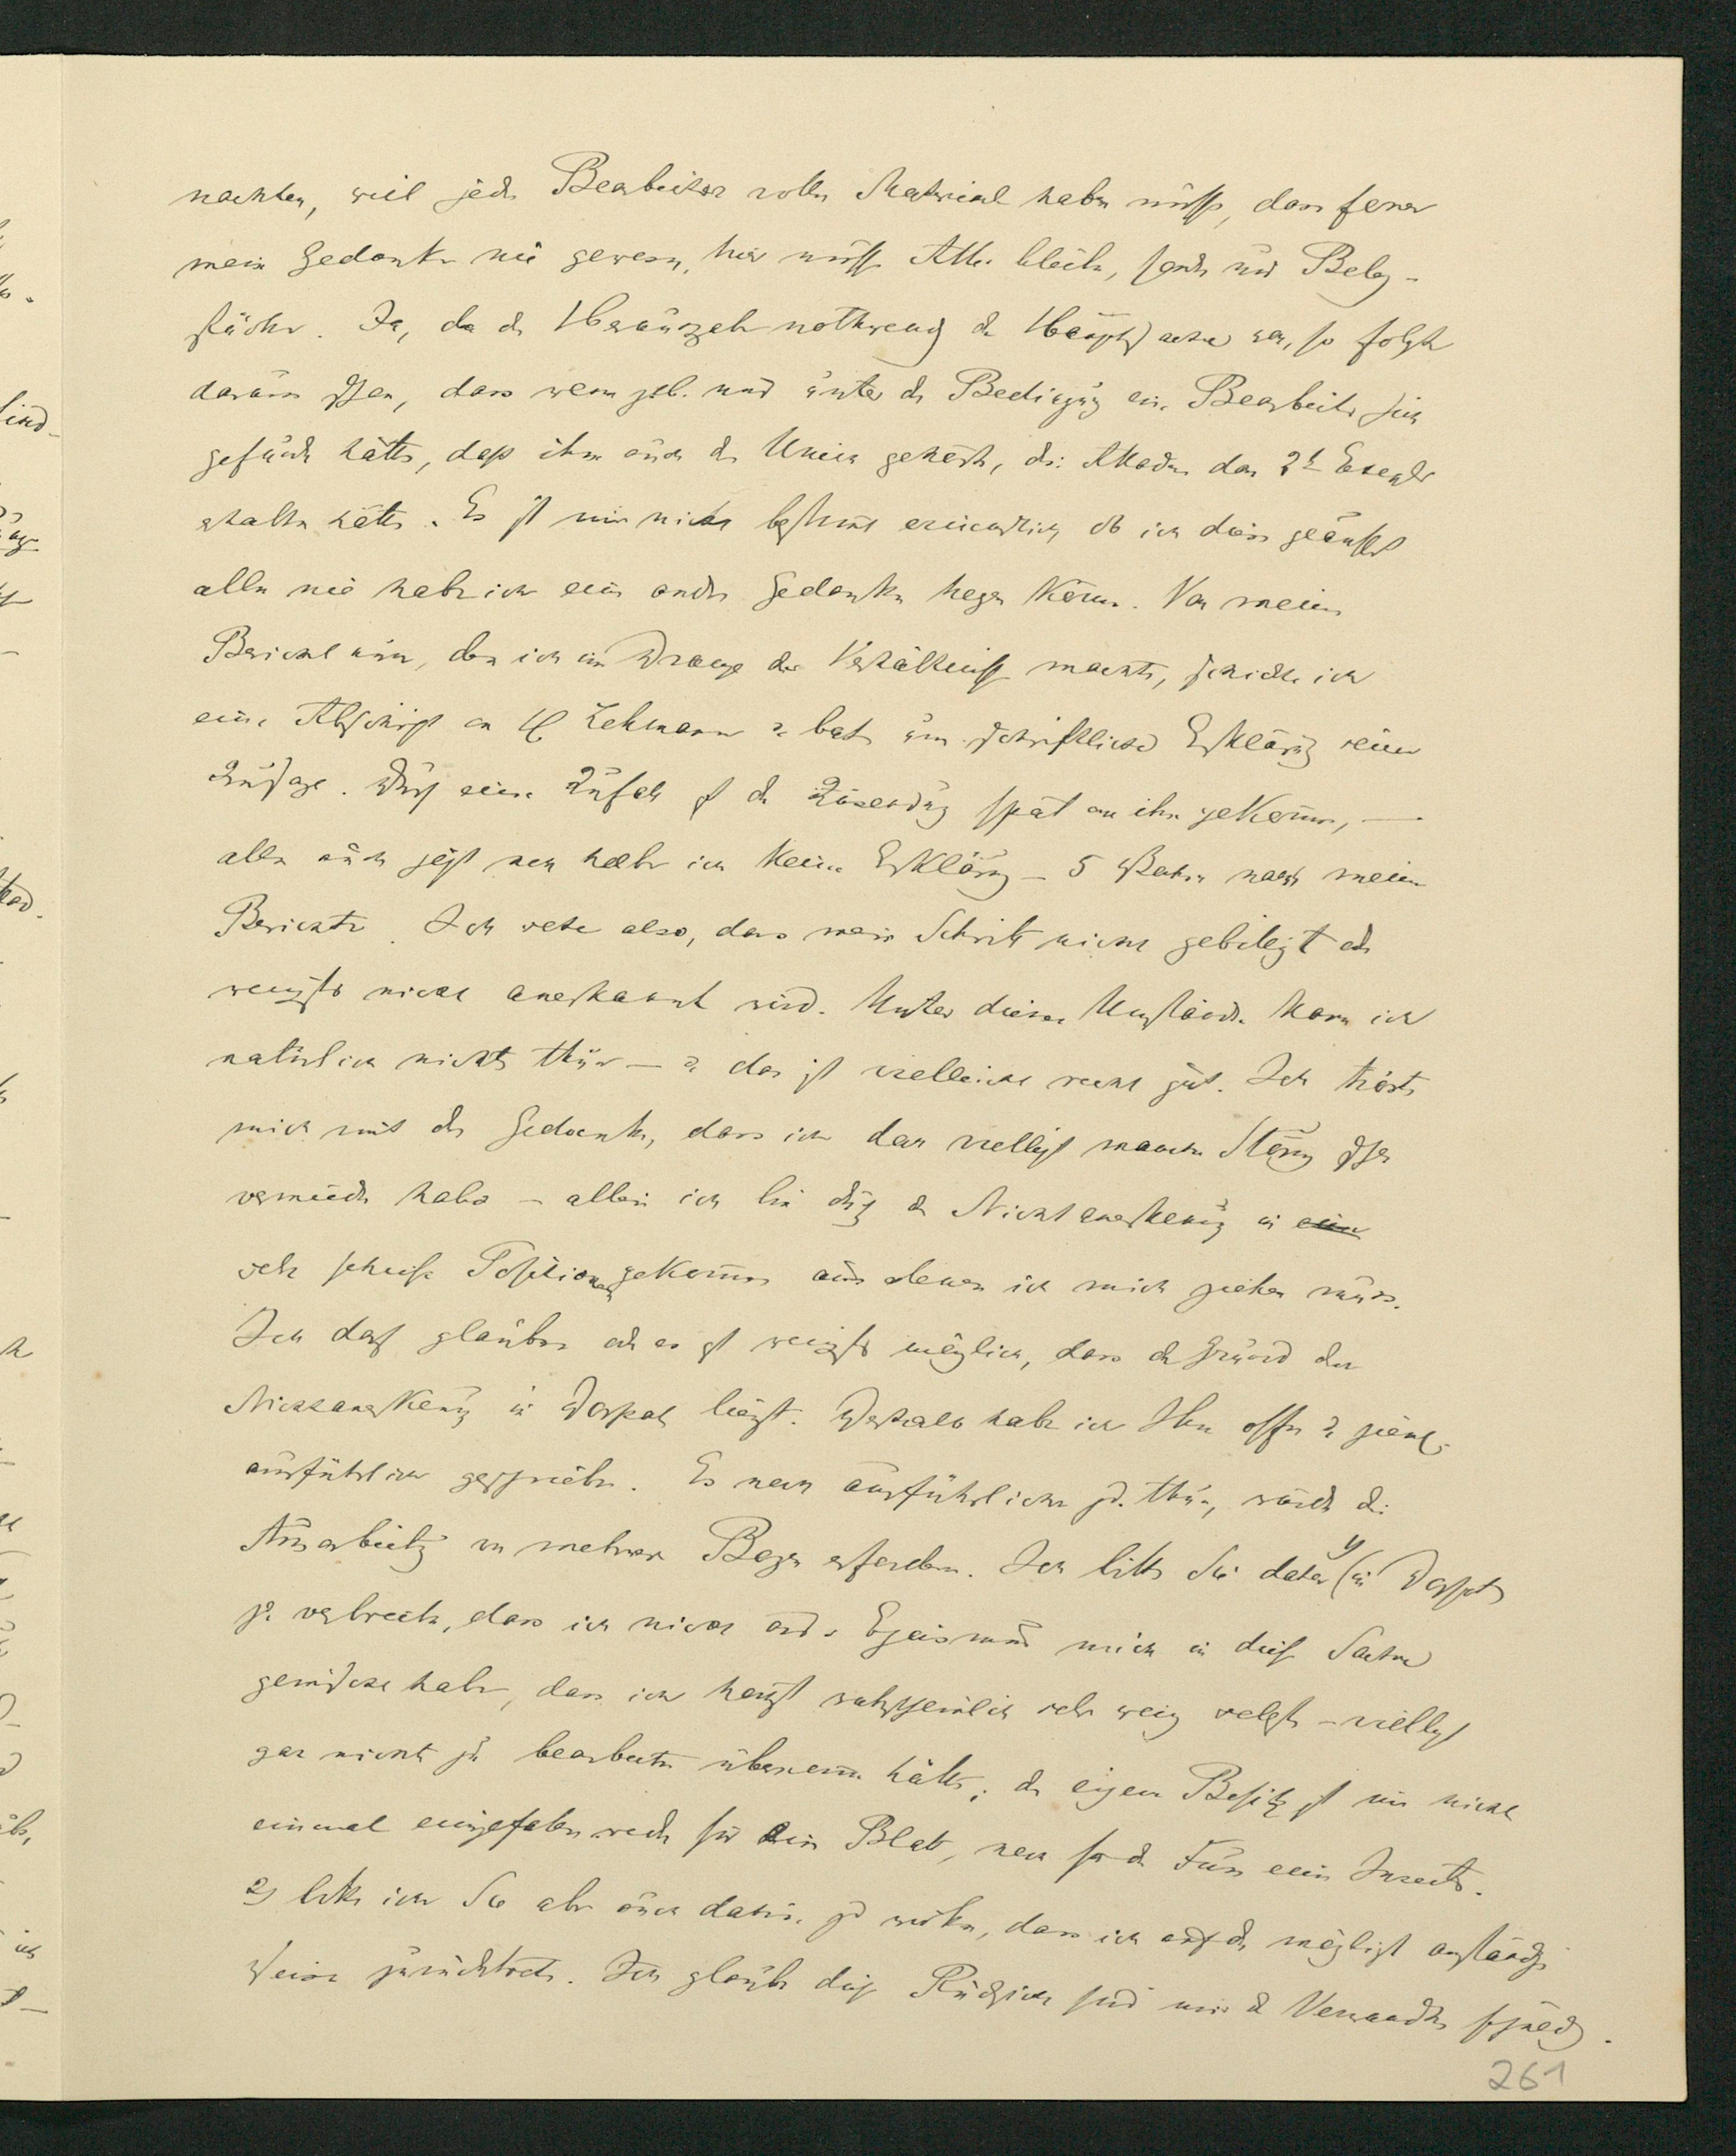 machten, weil jeder Bearbeiter volles Material haben müsse, dass ferner
mein Gedanke nie gewesen, hier müsse Alles bleiben, sondern nur Beleg-
stücke. Ja, da die Herausgabe nothwendig die Hauptsache war, so folgte
daraus schon, dass wenn selbst nur unter der Bedingung ein Bearbeiter sich
gefunden hätte, dass ihm auch das Unicum gehörte, die Akademie das 2te Exemplar
erhalten hätte. Es ist mir nicht bestimmt erinnerlich ob ich dies geäussert
allein nie habe ich einen andern Gedanken hegen können. Von meinem
Bericht nun, den ich im Drange der Verhältnisse machte, schickte ich
eine Abschrift an H Lehmann u bat um schriftliche Erklärung seiner
Zusage. Durch einen Zufall ist die Zusendung spät an ihn gekommen, —
allein auch jetzt noch habe ich keine Erklärung – 5 Wochen nach meinem
Berichte. Ich sehe also, dass mein Schritt nicht gebilligt oder
wenigstens nicht anerkannt wird. Unter diesen Umständen kann ich
natürlich nichts thun — u das ist vielleicht recht gut. Ich tröste
mich mit dem Gedanken, dass ich dann vielleicht manche Störung
vermieden habe – allein ich bin durch die Nichtanerkennung in ein
sehr schiefe Positionen gekommen aus denen ich mich ziehen muss.
Ich darf glauben oder es ist wenigstens möglich, dass der Grund der
Nichtanerkennung in Dorpat liegt. Deshalb habe ich Ihnen offen u ziemlich
ausführlich geschrieben. Es noch ausführlicher zu thun, würde die
Ausarbeitung von mehreren Bogen erfordern. Ich bitte Sie daher 1) in Dorpat
zu verbreiten, dass ich nicht aus Egoismus mich in diese Sache
gemischt habe, dass ich höchst wahrscheinlich sehr wenig selbst – vielleicht
gar nichts zu bearbeiten übernommen hätte; der eigene Besitz ist mir nicht
einmal eingefallen weder für ein Blatt, noch für den Fuss eines Insects.
2) bitte ich Sie aber auch dahin zu wirken, dass ich auf die möglichst anständige
Weise zurücktrete. Ich glaube diese Rücksicht sind mir die Verwandten schuldig.
261